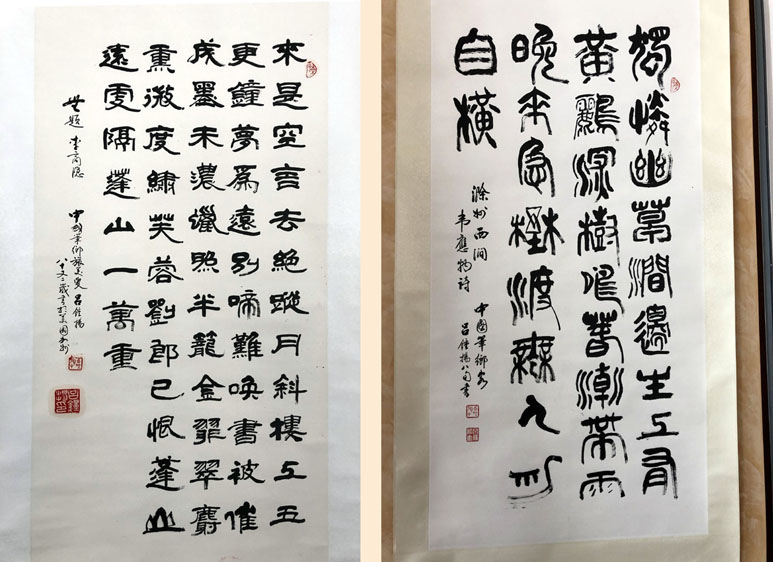 來是空言去絕蹤月斜樓上五
更鐘夢為遠別啼難喚書被催
成墨未濃蠟照半籠金翡翠麝
熏微度繡芙蓉劉郎已恨蓬山
遠更隔蓬山一萬重
無題 李商隱 中國筆鄉旅美叟 呂鍾揚
八十又二歲書於美國加州
獨憐幽草澗邊生上有
黃鸝深樹鳴春潮帶雨
晚來急野渡無人舟
自橫
滁州西澗
韋應物詩
中國筆鄉客
呂鍾揚八旬書